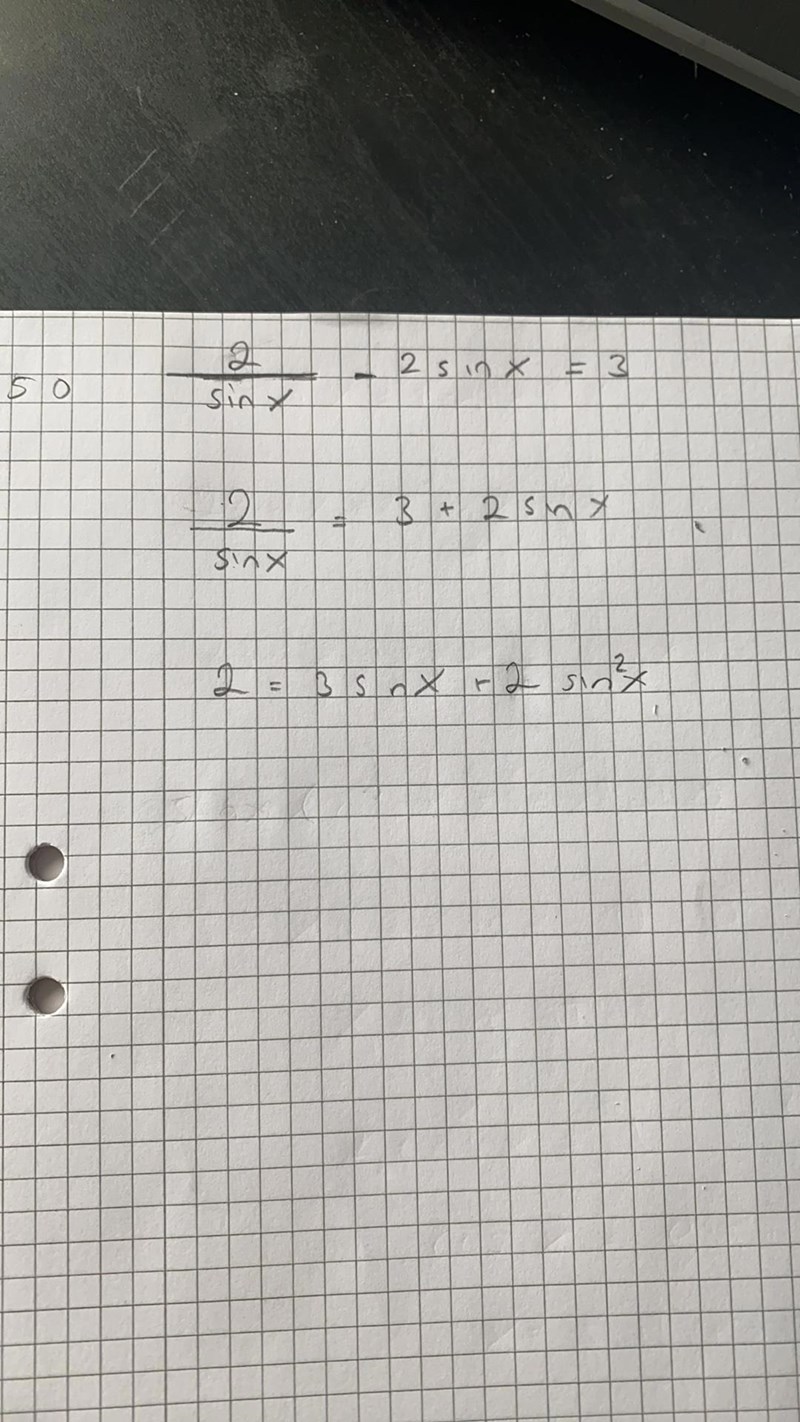 50 2/sin x - 2 sin x = 3
2/sin x = 3 + 2 sin x
2 = 3 sin x + 2 sin²x